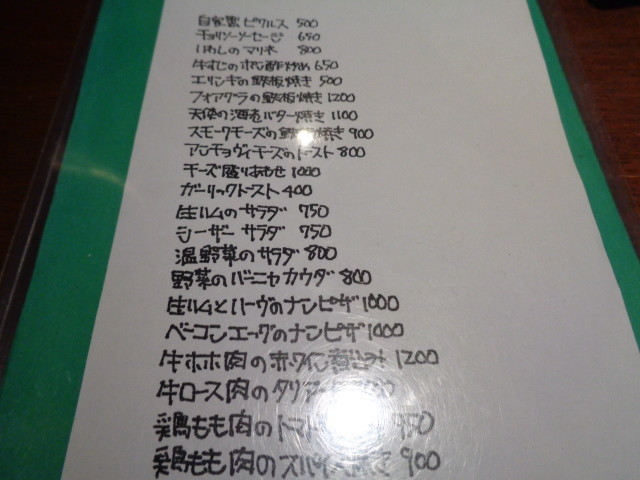 自家製ピクルス 500
チョリソーソーセージ 650
いわしのマリネ 800
牛すじのポン酢炒め 650
エリンギの鉄板焼き 500
フォアグラの鉄板焼き 1200
天使の海老バター焼き 1100
スモークチーズの 焼き 900
アンチョヴィチーズのトースト 800
チーズ盛りあわせ 1000
ガーリックトースト 400
生ハムのサラダ 750
シーザーサラダ 750
温野菜のサラダ 800
野菜のバーニャカウダ 800
生ハムとハーヴのナンピザ 1000
ベーコンエッグのナンピザ 1000
牛ホホ肉の赤ワイン煮込み 1200
牛ロース肉の
鶏もも肉の 950
鶏もも肉のスパイス焼き 900